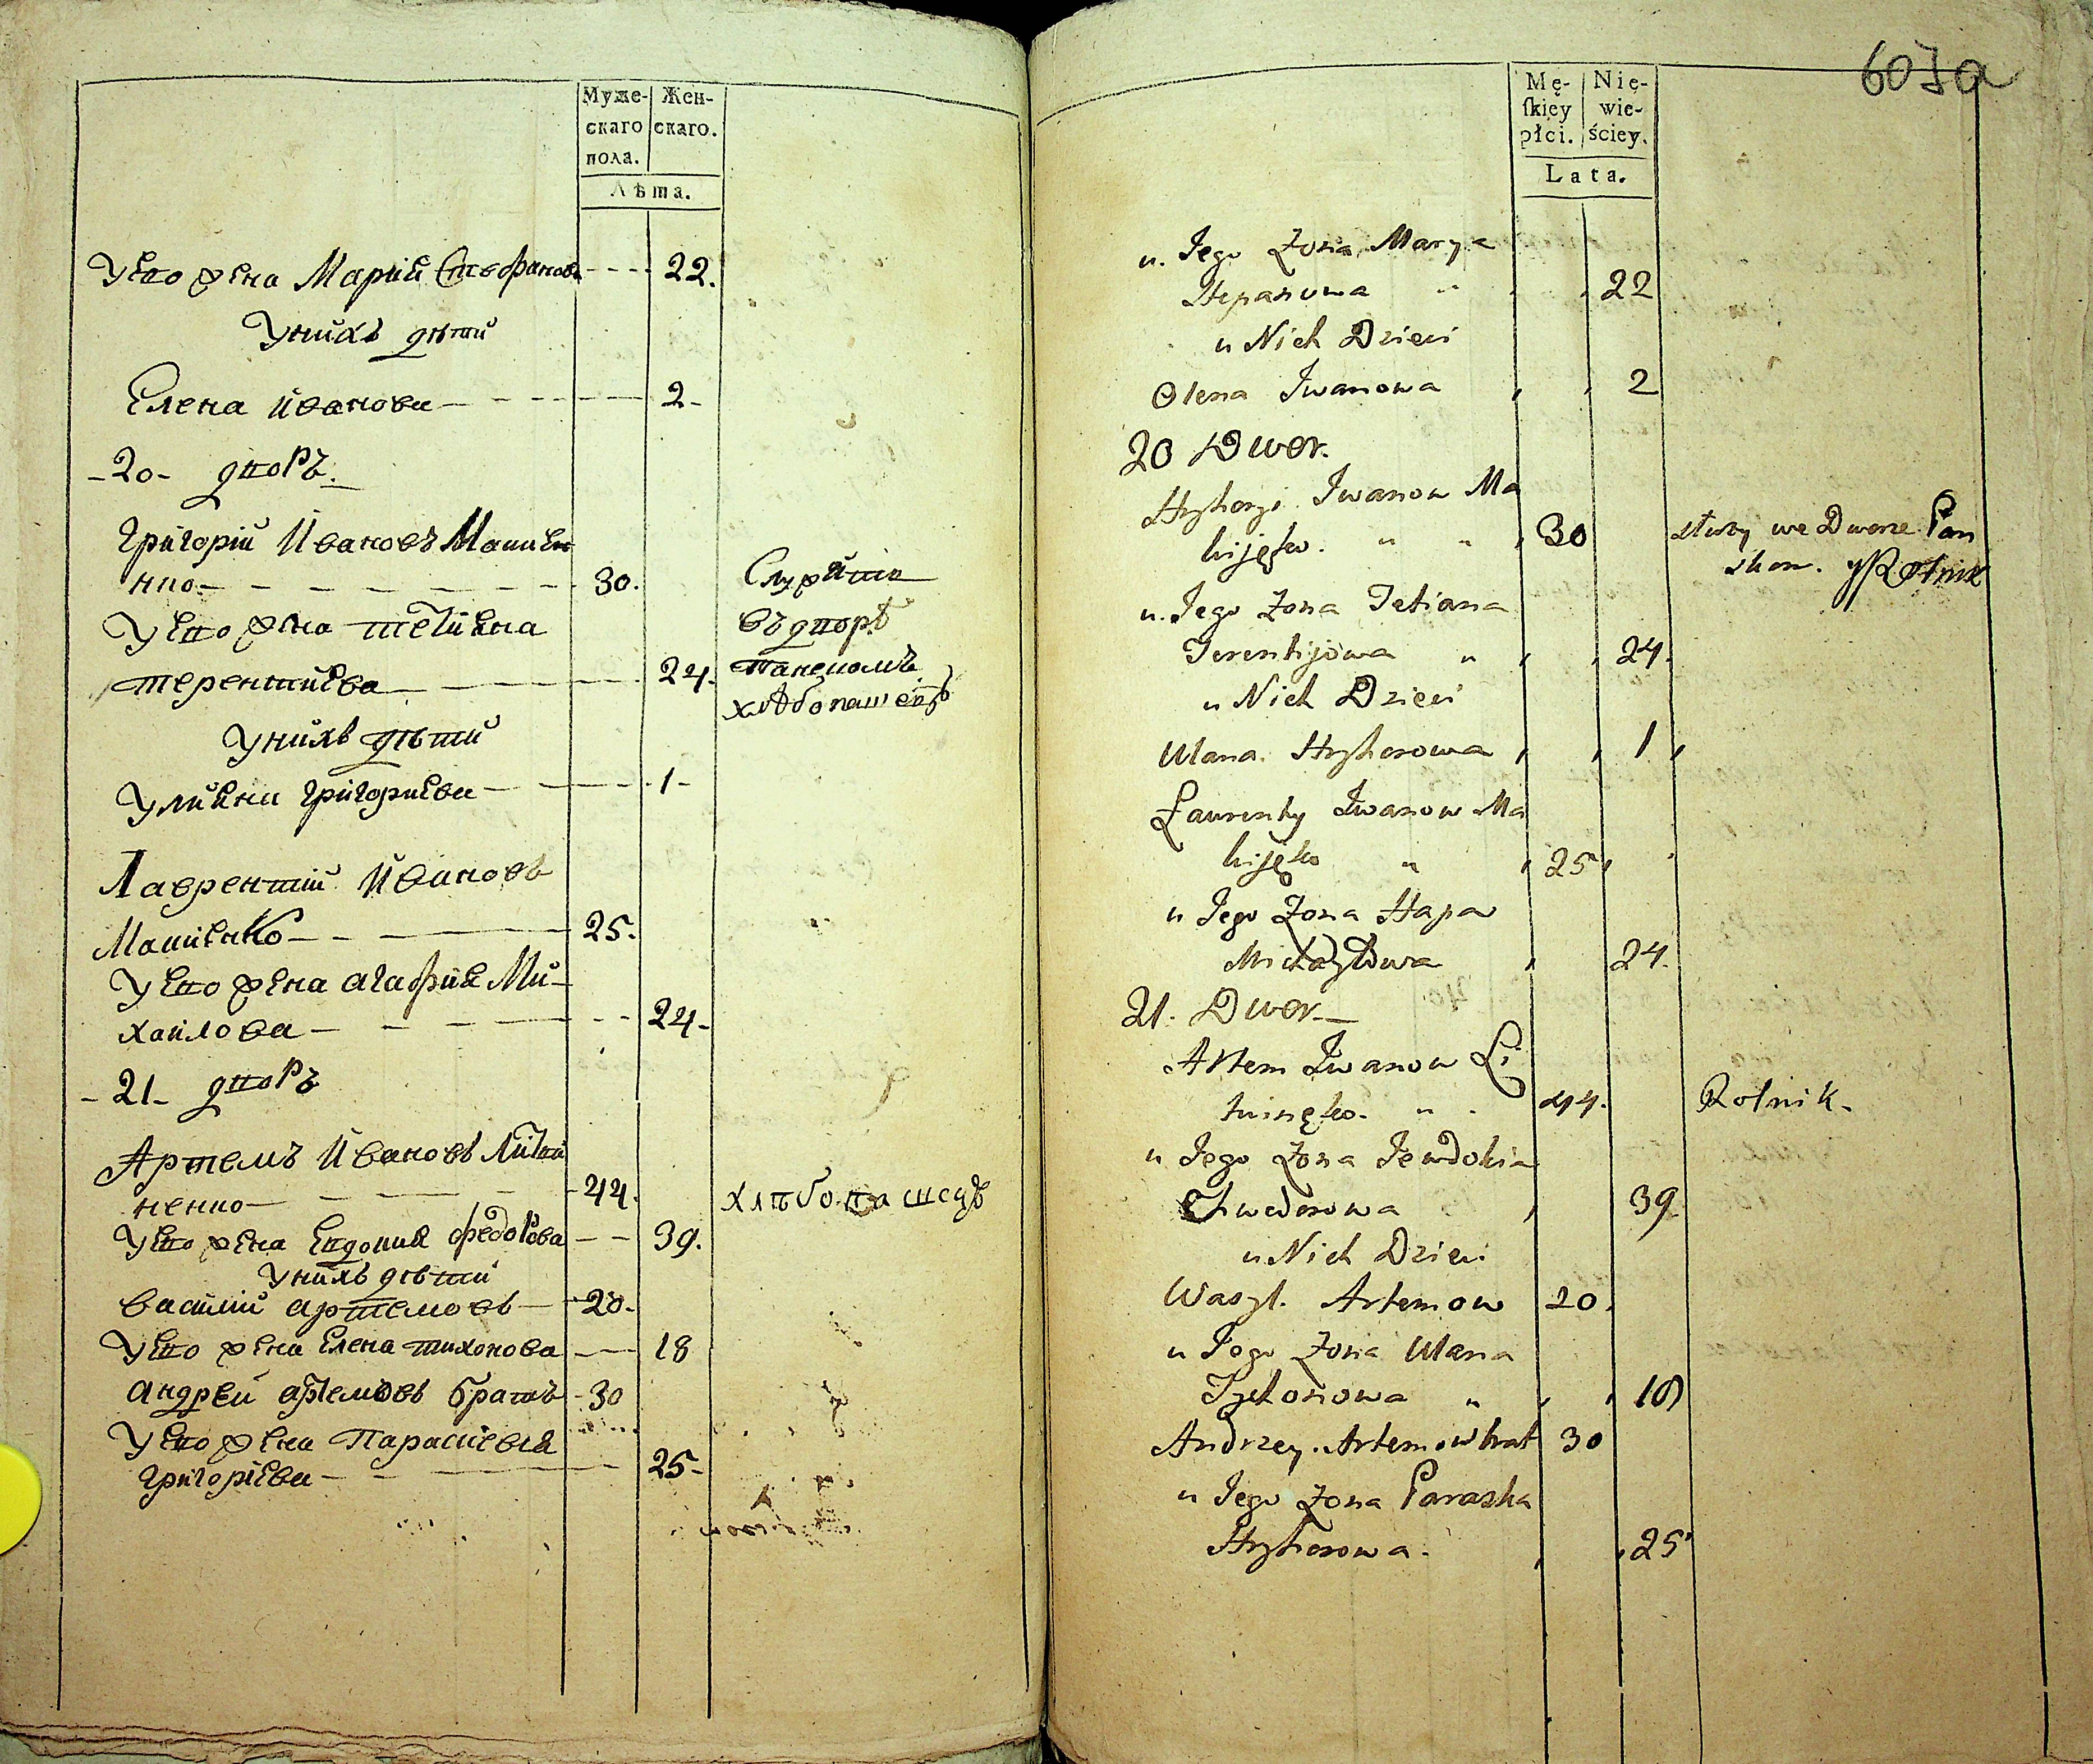 Муже-
скаго
пола.
Жен-
скаго.
Лѣта.
Уево жена Мария Стефанова 22.
Унихъ дѣти
Елена Иванова 2
20 дворъ.
Григорий Ивановъ Макиен
нко 30.
Уево жена Тетиана
терентиева 24.
Служитъ
въ дворѣ
панскомъ
хлѣбопашецъ
Унихъ дѣти
Улияна григориева 1
Лаврентий Ивановъ
Макиенко 25.
Уево жена агафия Ми-
хаилова 24
21 дворъ
Артемъ Ивановъ Литви
ненко 44. хлѣбопашецъ
Уево жена Евдокия федорова 39.
Унихъ дѣти
василий артемовъ 20.
Уево жена Елена тихонова 18
андрей артемовъ братъ 30
Уево жена Параскевия
григориева 25
607a
Mę-
ſkiey
płci.
Nie-
wie-
ściey.
Lata.
u. Jego Zona Marya
Stepanowa 22
u Nich Dzieci
Olena Iwanowa 2
20 Dwor.
Hryhory Iwanow Ma
kijęko. 30
służy we Dworze Pan
skom. y Rolnik
u. Jego Zona Tetiana
Terentijowa 24.
u Nich Dzieci
Ulana. Hryhorowa 1
Ławrenty Iwanow Ma
kijęko 25
u Jego Zona Hapa
Michayłowa 24.
21. Dwor.
Artem Iwanow Li
twinęko. 44. Rolnik.
u Jego Zona Jewdokia
Chwedorowa 39
u Nich Dzieci
Wasyl. Artemow 20.
u Jego Zona Ulana
Tychonowa 18
Andrzey. Artemow brat 30
u Jego Zona Paraska
Hryhorowa. 25